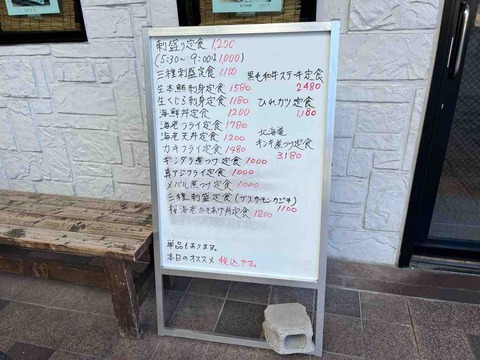 刺盛り定食 1,200
(5:30～9:00は1,000)
三種刺盛定食 1,100
生本鮪刺身定食 1580
生くじら刺身定食 1180
海鮮丼定食 1200
海老フライ定食 1780
海老天丼定食 1200
カキフライ定食 1480
ギンダラ煮つけ定食 1000
真アジフライ定食 1000
メバル煮つけ定食 1000
三種刺盛定食(ブリ.サーモン.カジキ) 1100
桜海老かきあげ丼定食 1200
黒毛和牛ステーキ定食
2480
ひれカツ定食
1,180
北海道
キンキ煮つけ定食
3,180
単品もあります。
本日のオススメ 税込です。